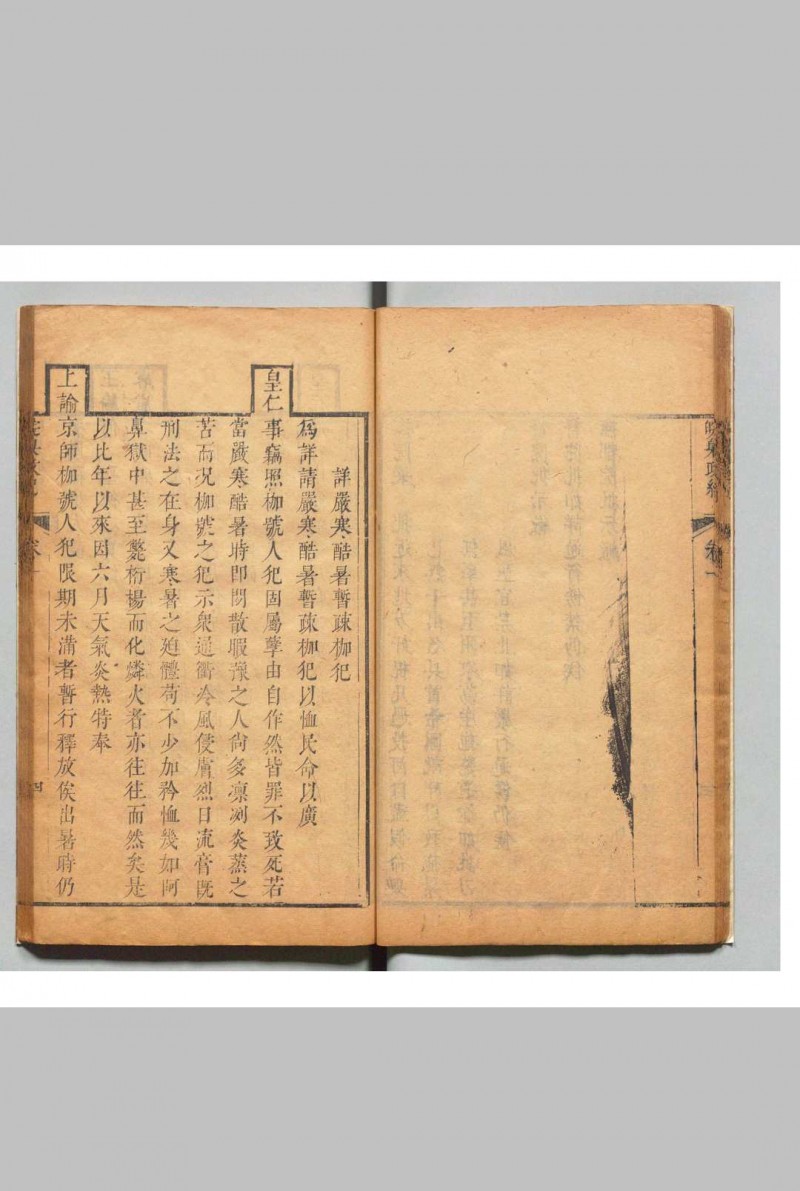 卷一
詳嚴寒酷暑暫疎枷犯
爲詳請嚴寒酷暑暫疎枷犯以恤民命以廣
皇仁事竊照枷號人犯固屬孽由自作然皆罪不致死若
當嚴寒酷暑時即閒散暇豫之人尙多凛冽炎蒸之
苦而况枷號之犯示衆通衢冷風侵膚烈日流膏旣
刑法之在身又寒暑之廹體苟不少加矜恤幾如阿
鼻獄中甚至斃桁楊而化燐火者亦往往而然矣是
以比年以來因六月天氣炎熱特奉
上諭京師枷號人犯限期未滿者暫行釋放俟出暑時仍
四